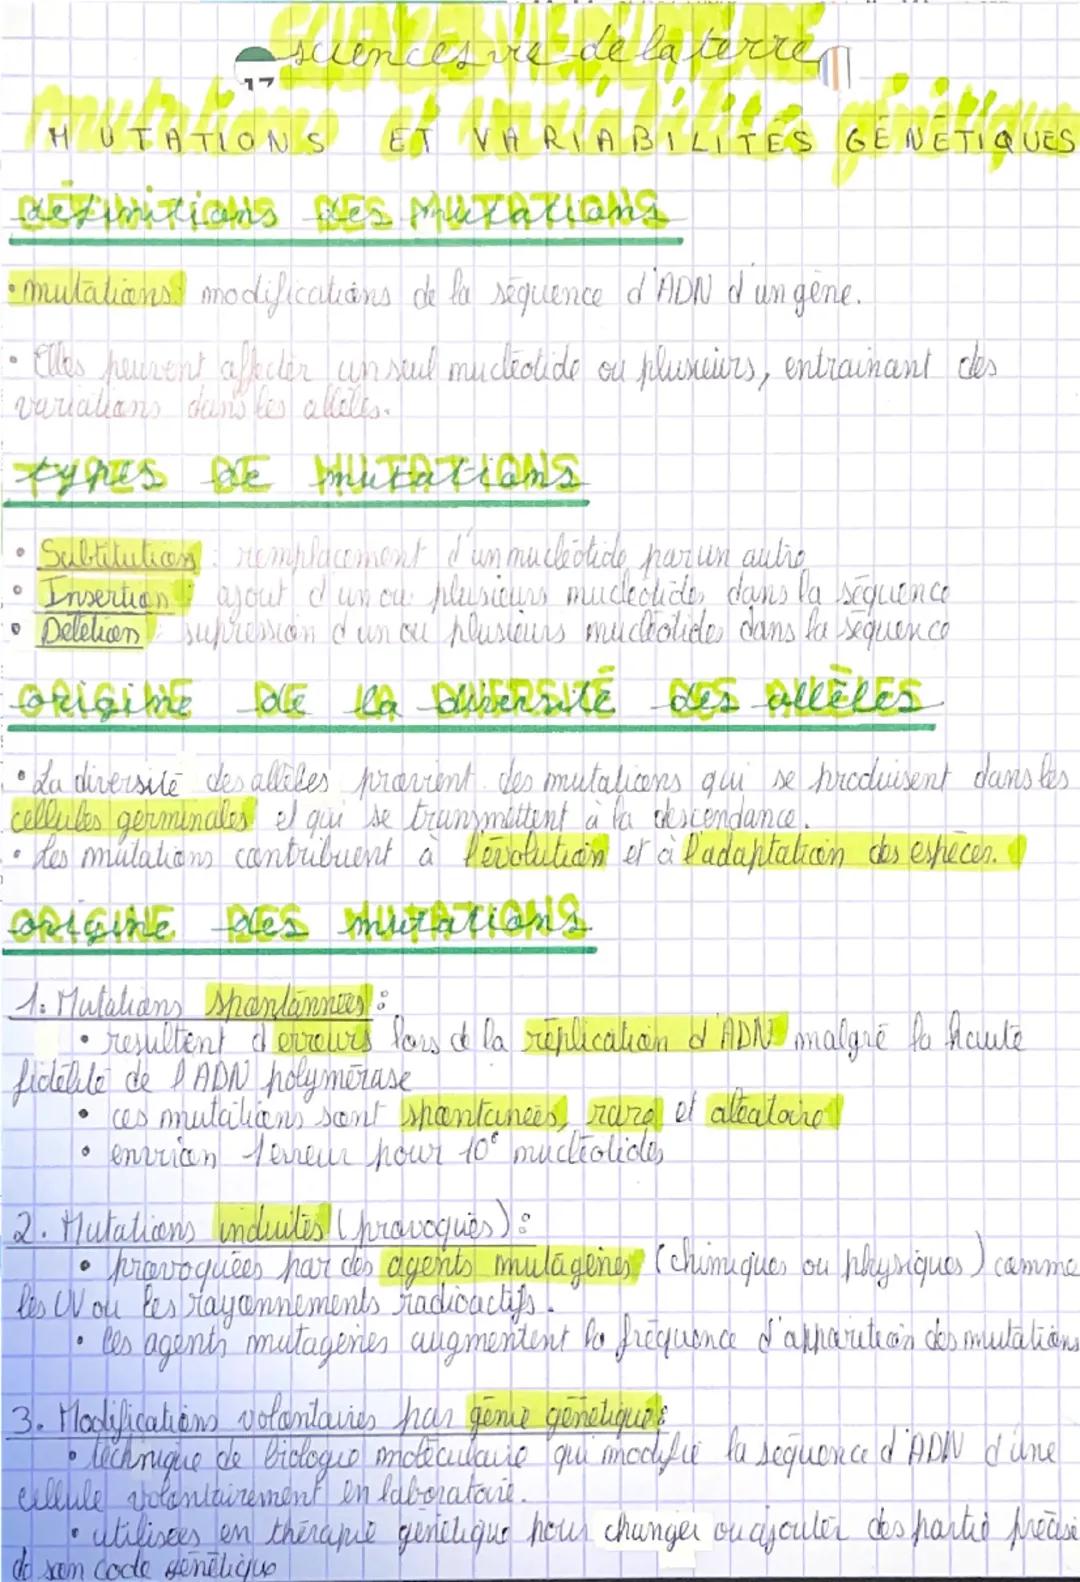 sciences vie de la terre
17
MUTATIONS ET VARIABILITÉS GÉNÉTIQUES
définitions des mutations
• mutations : modifications de la séquence d'ADN d'un gène.
• Elles peuvent affecter un seul nucléotide ou plusieurs, entrainant des
variations dans les allèles.
types de mutations
• Subtitution : remplacement d'un nucléotide par un autre
• Insertion : ajout d'un ou plusieurs nucléotides dans la séquence
• Délétion : supression d'un ou plusieurs nucléotides dans la séquence
origine de la diversité des allèles
• La diversité des allèles provient des mutations qui se produisent dans les
cellules germinales et qui se transmettent à la descendance.
• Les mutations contribuent à l'évolution et à l'adaptation des espèces.
origine des mutations
1. Mutations spontannées :
• resultent d'erreurs lors de la réplication d'ADN malgré la haute
fidélité de l'ADN polymérase
• ces mutations sont spontanées, rare et aléatoire
• envrion 1 erreur pour 10⁶ nucléotides
2. Mutations induites (provoqués) :
• provoquées par des agents mutagènes (chimiques ou physiques) comme
les UV ou les rayonnements radioactifs.
• les agents mutagènes augmentent la fréquence d'apparition des mutations
3. Modifications volontaires par génie génétique :
• technique de biologie moléculaire qui modifie la séquence d'ADN d'une
cellule volontairement en laboratoire.
• utilisées en thérapie génétique pour changer ou ajouter des partie précise
de son code génétique